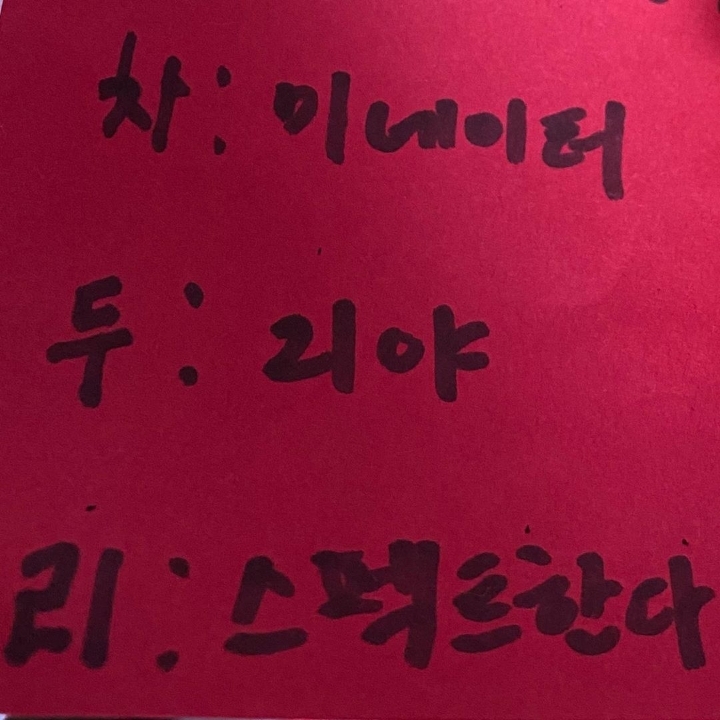 차: 미네이터
두: 리야
리: 스펙트한다